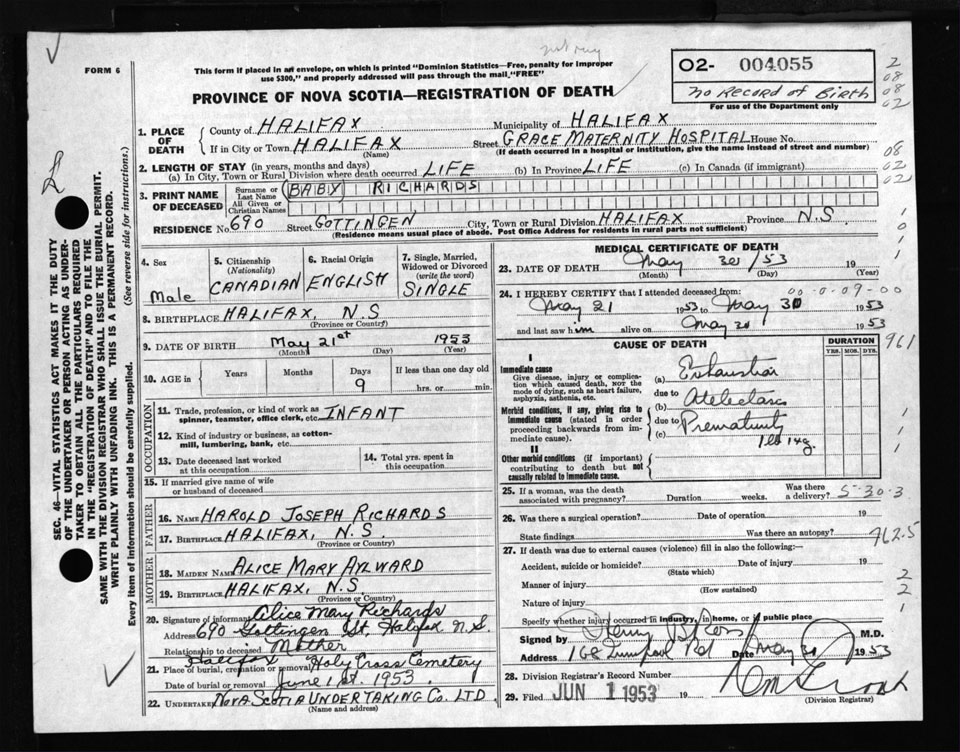 not reg
FORM 6
This form if placed in an envelope, on which is printed "Dominion Statistics—Free, penalty for improper
use $300," and properly addressed will pass through the mail "FREE"
PROVINCE OF NOVA SCOTIA—REGISTRATION OF DEATH
02- 004055
No Record of Birth
For use of the Department only
2
08
08
02
08
02
02
1. PLACE OF DEATH
County of HALIFAX Municipality of HALIFAX
If in City or Town HALIFAX Street GRACE MATERNITY HOSPITAL House No.
(Name) (If death occurred in a hospital or institution, give the name instead of street and number)
2. LENGTH OF STAY (in years, months and days)
(a) In City, Town or Rural Division where death occurred LIFE (b) In Province LIFE (c) In Canada (if immigrant)
3. PRINT NAME OF DECEASED
Surname or Last Name (BABY) RICHARDS
All Given or Christian Names
RESIDENCE No. 690 Street GOTTINGEN City, Town or Rural Division HALIFAX Province N.S
(Residence means usual place of abode. Post Office Address for residents in rural parts not sufficient)
4. Sex
Male
5. Citizenship (Nationality)
CANADIAN
6. Racial Origin
ENGLISH
7. Single, Married, Widowed or Divorced (write the word)
SINGLE
8. BIRTHPLACE HALIFAX, N.S
(Province or Country)
9. DATE OF BIRTH May 21st 1953
(Month) (Day) (Year)
10. AGE in Years Months Days If less than one day old
9 hrs. or min.
OCCUPATION
11. Trade, profession, or kind of work as spinner, teamster, office clerk, etc. INFANT
12. Kind of industry or business, as cotton-mill, lumbering, bank, etc.
13. Date deceased last worked at this occupation
14. Total yrs. spent in this occupation
15. If married give name of wife or husband of deceased
FATHER
16. NAME HAROLD JOSEPH RICHARDS
17. BIRTHPLACE HALIFAX, N.S.
(Province or Country)
MOTHER
18. MAIDEN NAME ALICE MARY AYLWARD
19. BIRTHPLACE HALIFAX, N.S.
(Province or Country)
20. Signature of informant Alice Mary Richards
Address 690 Gottingen St, Halifax N.S.
Relationship to deceased Mother
21. Place of burial, cremation or removal Halifax Holy Cross Cemetery
Date of burial or removal June 1st. 1953.
22. UNDERTAKER NOVA SCOTIA UNDERTAKING CO. LTD.
(Name and address)
MEDICAL CERTIFICATE OF DEATH
23. DATE OF DEATH May 30/53 19
(Month) (Day) (Year)
24. I HEREBY CERTIFY that I attended deceased from: 00-0-09-00
May 21 1953 to May 30 1953
and last saw him alive on May 30 1953
CAUSE OF DEATH
DURATION
YRS. MOS. DYS.
961
I
Immediate cause
Give disease, injury or complication which caused death, NOT the mode of dying, such as heart failure, asphyxia, asthenia, etc.
(a) Exhaustion
due to
(b) Atelectasis
Morbid conditions, if any, giving rise to immediate cause (stated in order proceeding backwards from immediate cause).
due to
(c) Prematurity
II
Other morbid conditions (if important) contributing to death but not causally related to immediate cause.
25. If a woman, was the death associated with pregnancy? Duration weeks. Was there a delivery?
5-30-3
26. Was there a surgical operation? Date of operation 19
State findings Was there an autopsy?
762.5
27. If death was due to external causes (violence) fill in also the following:—
Accident, suicide or homicide? Date of injury 19
(State which)
Manner of injury
(How sustained)
Nature of injury
Specify whether injury occurred in industry, in home, or in public place
Signed by Henry M.D.
Address 168 Rd Date May 30 1953
28. Division Registrar's Record Number
29. Filed JUN 1 1953 19
(Division Registrar)
SEC. 46—VITAL STATISTICS ACT MAKES IT THE DUTY
OF THE UNDERTAKER OR PERSON ACTING AS UNDER-
TAKER TO OBTAIN ALL THE PARTICULARS REQUIRED
IN THE "REGISTRATION OF DEATH" AND TO FILE THE
SAME WITH THE DIVISION REGISTRAR WHO SHALL ISSUE THE BURIAL PERMIT.
WRITE PLAINLY WITH UNFADING INK. THIS IS A PERMANENT RECORD.
Every item of information should be carefully supplied. (See reverse side for instructions.)